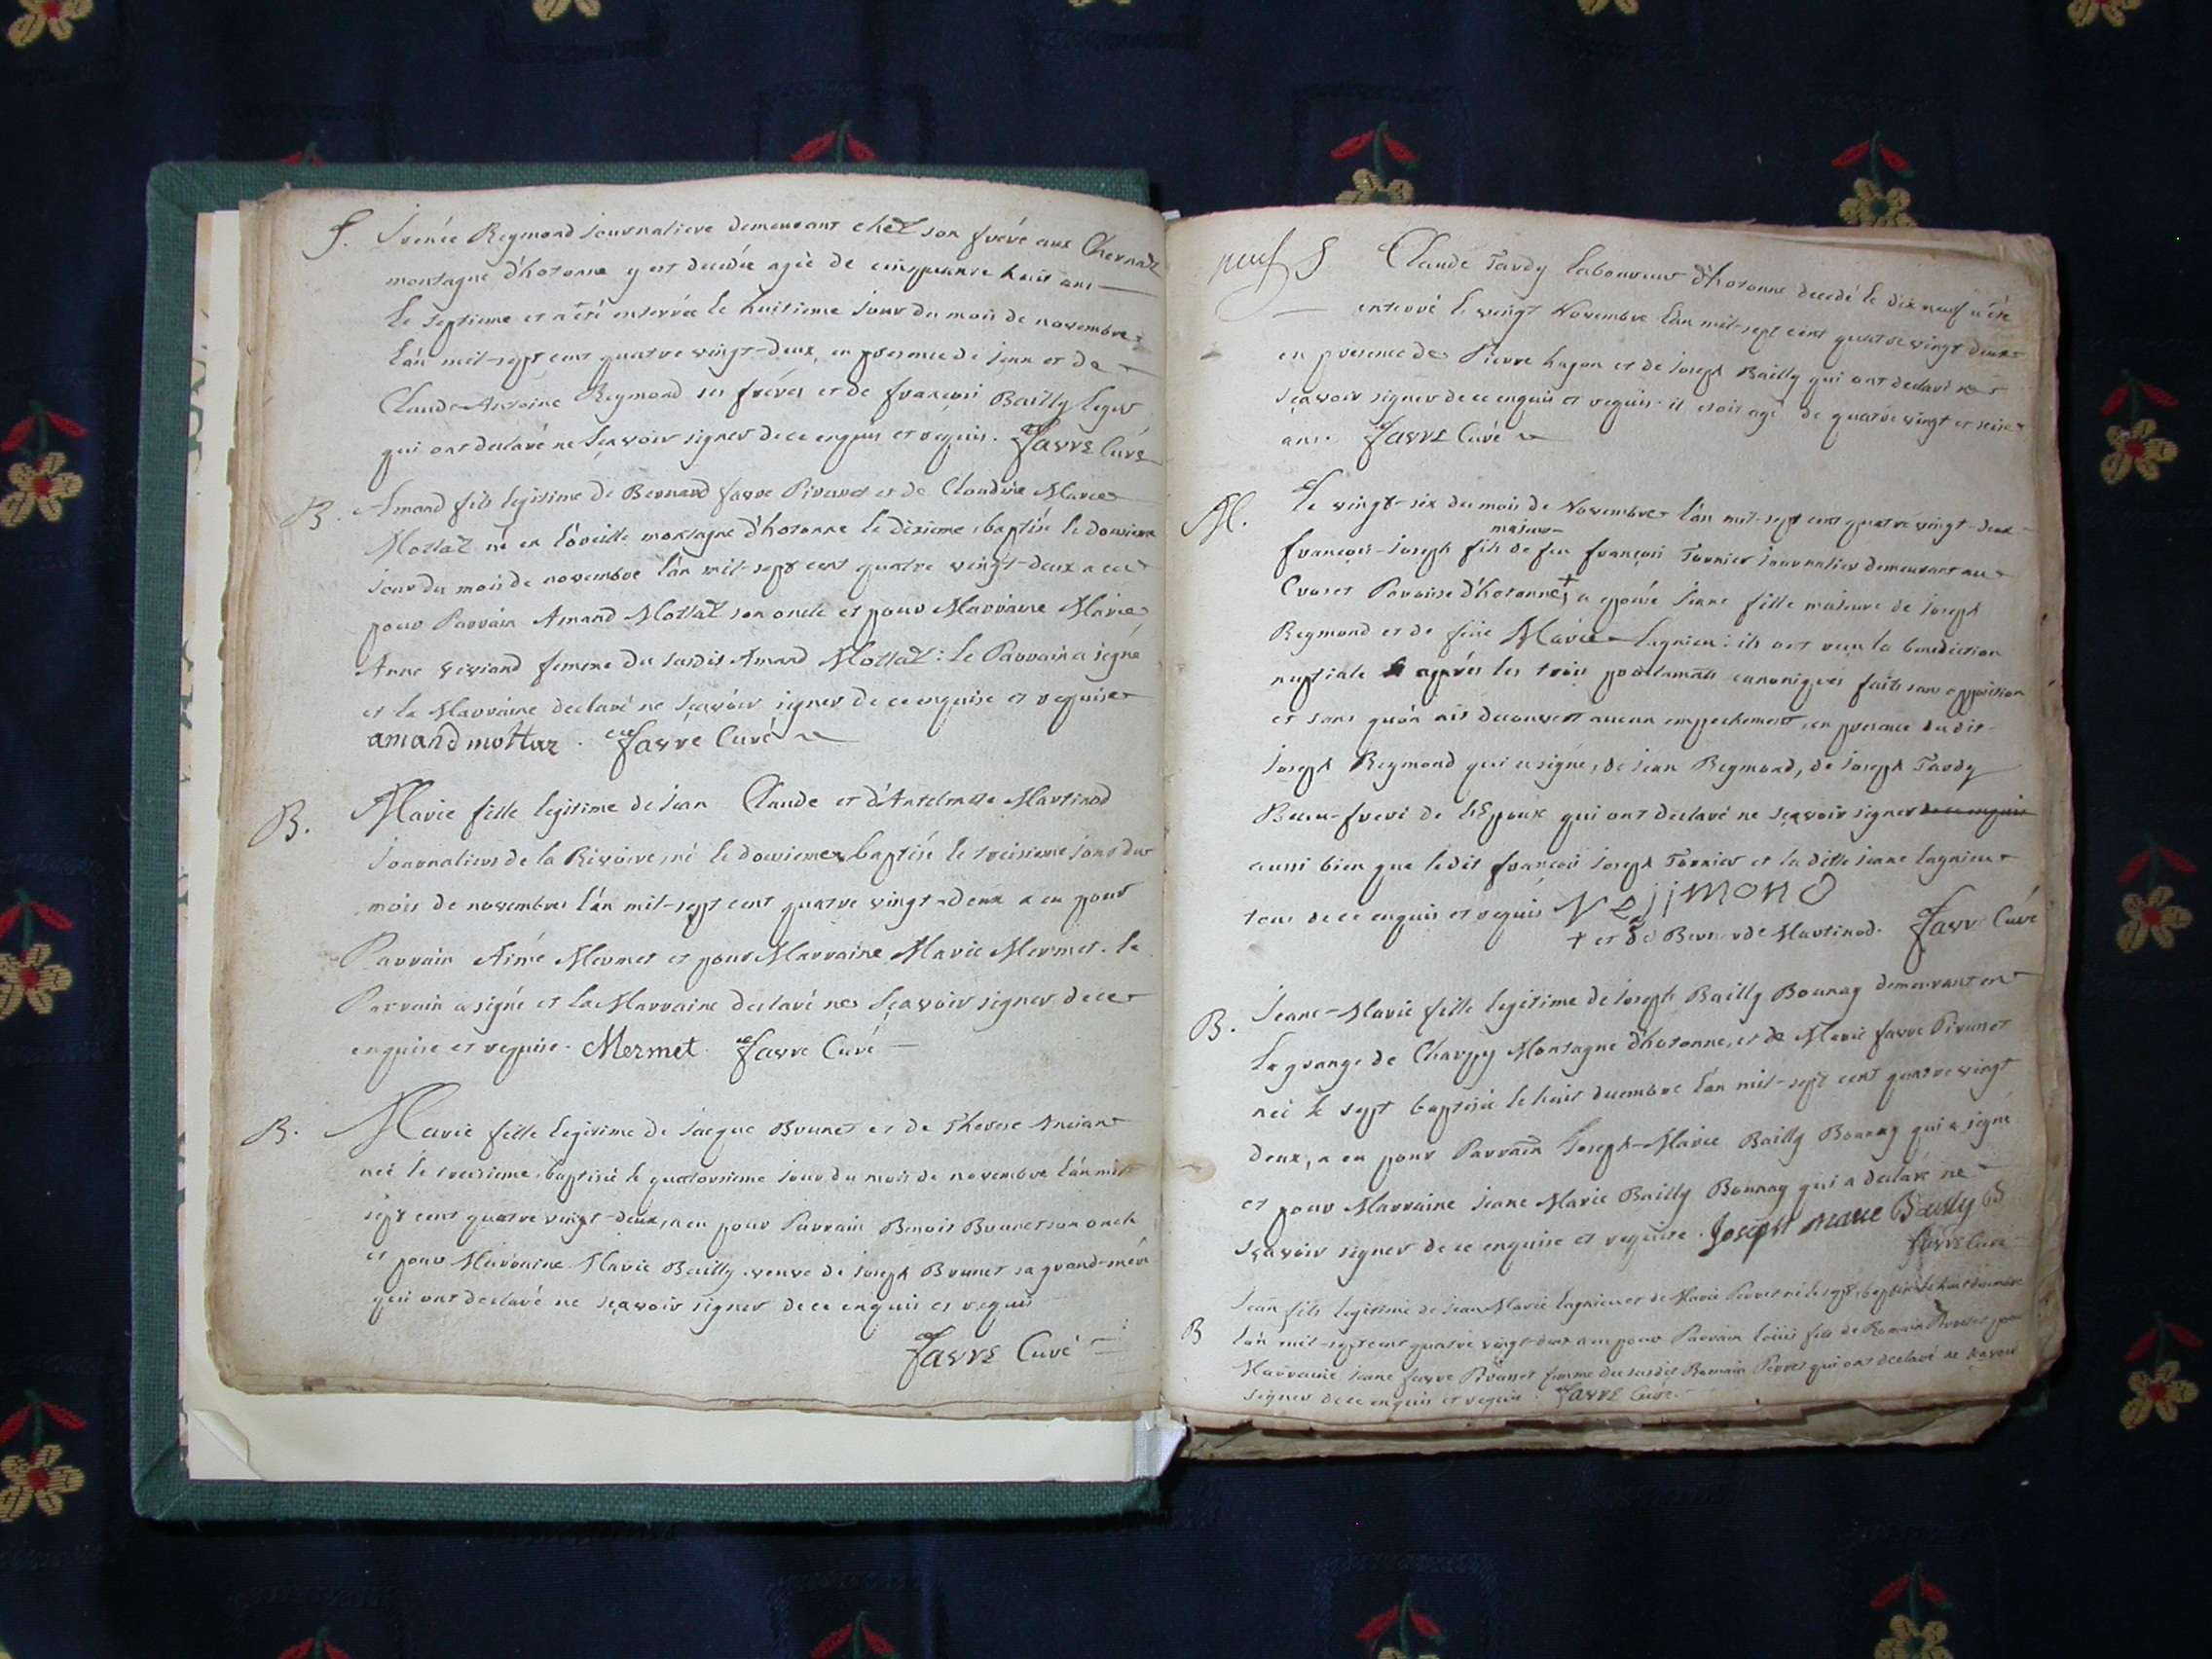 S. Irenée Reymond Journaliere demeurant chez son frére aux Chernaz
montagne d'hotonne y est decedée agée de cinquante huit ans
le septieme et a été enterrée le huitieme jour du mois de novembre
l'an mil-sept cent quatre vingt-deux, en presence de jean et de
Claude-Antoine Reymond ses fréres et de françois Bailly Leger
qui ont declaré ne sçavoir signer de ce enquis et requis. Favre Curé
B. Amand fils legitime de Bernard favre Pirunet et de Claudine Marie
Mottaz né en l'aveille montagne d'hotonne le dixieme, baptisé le douzieme
jour du mois de novembre l'an mil-sept cent quatre vingt-deux a eu
pour Parrain Amand Mottaz son oncle et pour Marraine Marie
Anne Viviand femme du susdit Amand Mottaz: le Parrain a signé
et la Marraine declaré ne sçavoir signer de ce enquise et requise
amand mottaz. Favre Curé
B. Marie fille legitime de jean Claude et d'Antelmette Martinod
journaliers de la Rivoire, né le douzieme, baptisé le treizieme jour du
mois de novembre l'an mil-sept cent quatre vingt-deux a eu pour
Parrain Aimé Mermet et pour Marraine Marie Mermet. le
Parrain a signé et la Marraine declaré ne sçavoir signer de ce
enquise et requise. Mermet. Favre Curé
B. Marie fille legitime de jacque Brunet et de Therese Ancian
neé le treizieme, baptisée le quatorzieme jour du mois de novembre l'an mil
sept cent quatre vingt-deux, a eu pour Parrain Benoit Brunet son oncle
et pour Marraine Marie Bailly veuve de joseph Brunet sa grand-mére
qui ont declaré ne sçavoir signer de ce enquis et requis
Favre Curé
neuf S Claude Tardy laboureur d'hotonne decedé le dix neuf a été
enterré le vingt Novembre l'an mil-sept cent quatre vingt deux
en presence de Pierre hugon et de joseph Bailly qui ont declaré ne
sçavoir signer de ce enquis et requis. il etoit agé de quatre vingt et seize
ans. Favre Curé
M. Le vingt-six du mois de Novembre l'an mil-sept cent quatre vingt-deux
majeur
françois-joseph fils de feu françois Tornier journalier demeurant au
Crozet Paroisse d'hotonne + a epousé jeane fille majeure de joseph
Reymond et de feüe Marie Lagnieu: ils ont reçu la benediction
nuptiale aprés les trois proclamats canoniques faits sans opposition
et sans qu'on ait decouvert aucun empechement, en presence dudit
joseph Reymond qui a signé, de jean Reymond, de joseph Tardy
Beau-frere de l'Epoux qui ont declaré ne sçavoir signer de ce enquis
aussi bien que le dit françois joseph Tornier et la ditte jeane Lagnieu
tous de ce enquis et requis Rejjmond
+ et de Bernarde Martinod. Favre Curé
B. jeane-Marie fille legitime de joseph Bailly Bonnay demeurant en
la grange de Charpy Montagne d'hotonne, et de Marie favre Pirunet
neé le sept baptisée le huit decembre l'an mil-sept cent quatre vingt
deux, a eu pour Parrain Joseph-Marie Bailly Bonnay qui a signé
et pour Marraine jeane Marie Bailly Bonnay qui a declaré ne
sçavoir signer de ce enquise et requise. Joseph marie Bailly B
Favre Curé
jean fils legitime de jean Marie Lagnieu et de Marie Perret né le sept, baptisé le huit decembre
B l'an mil-sept cent quatre vingt-deux a eu pour Parrain Loüis fils de Romain Perret pour
Marraine jeane favre Pirunet femme du susdit Romain Perret qui ont declaré ne sçavoir
signer de ce enquis et requis. Favre Curé.